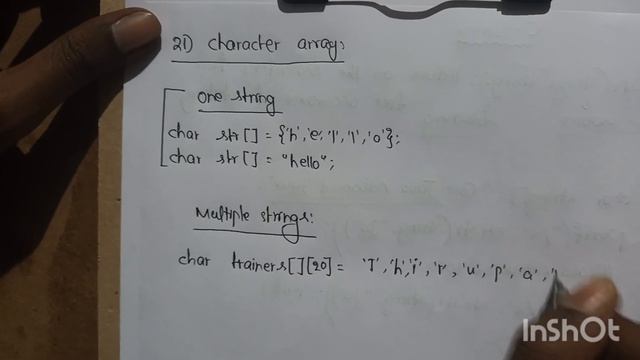 21) character array:
one string
char str[] = {'h','e','l','l','o'};
char str[] = "hello";
Multiple strings:
char trainers[][20] = 'T','h','i','r','u','p','a','
InShOt